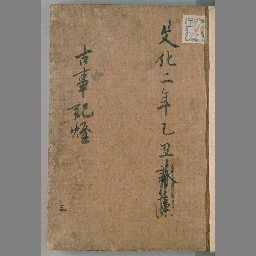 文化二年乙丑
古事記燈
三